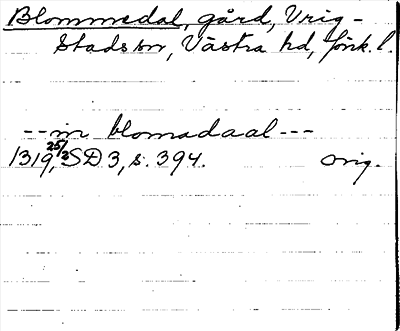 Blommedal, gård, Vrig-
stads sn, Västra hd, Jönk. l.
-- in blomadaal ---
1319 25/2, SD 3, s. 394. orig.